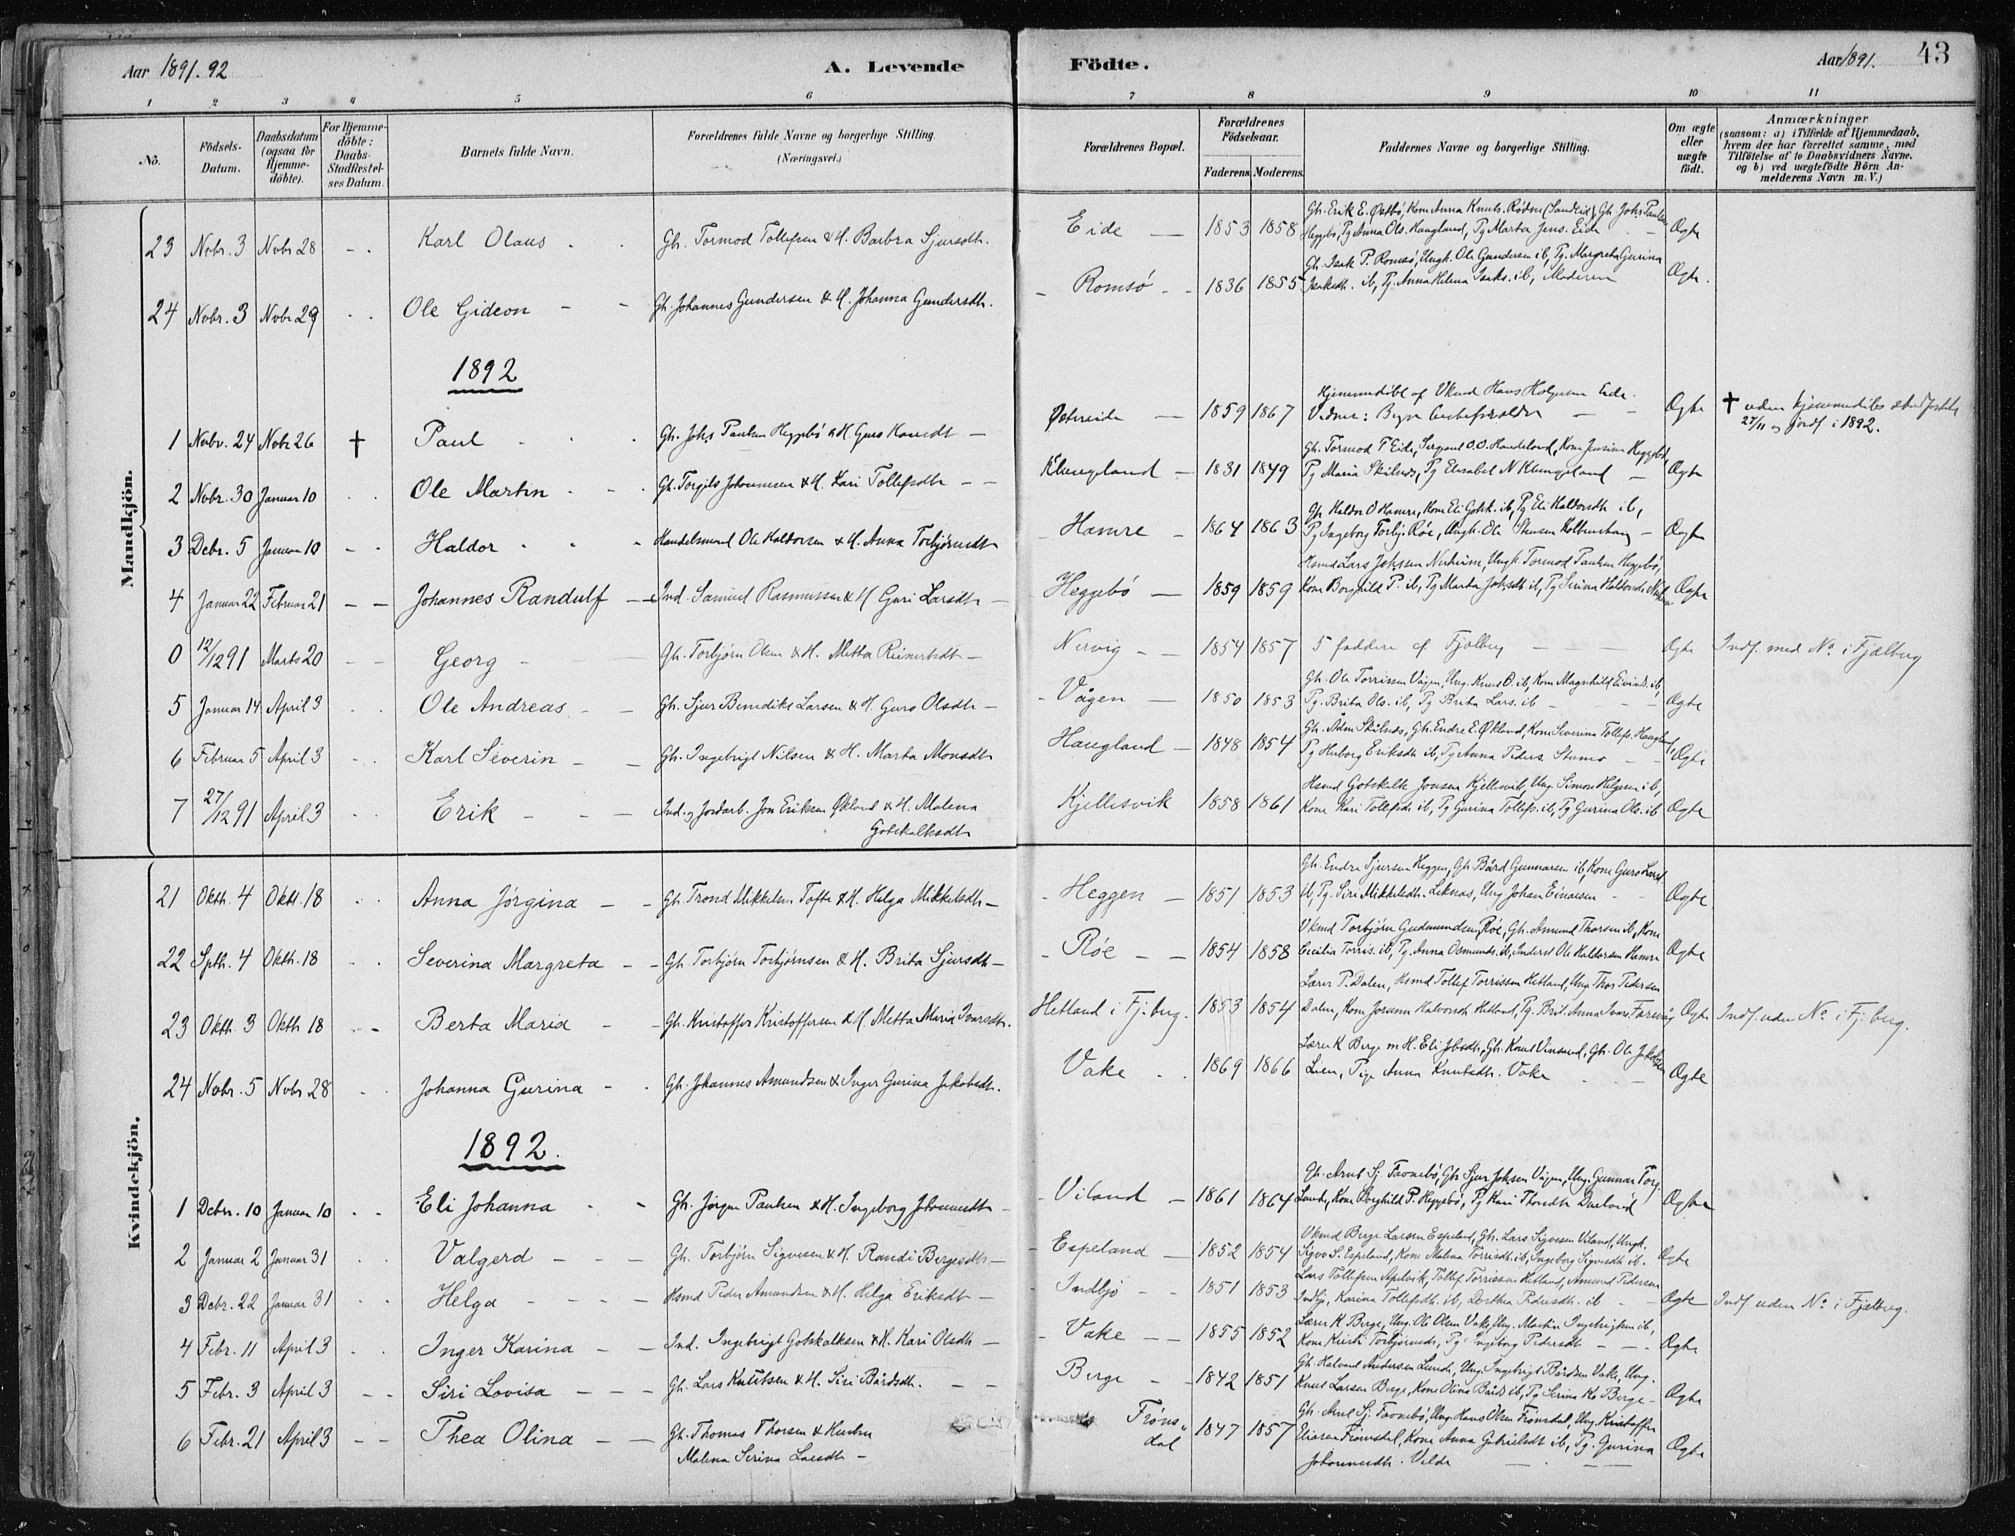 Aar 1891. 92
A. Levende
Födte.
Aar 1891.
43
1 2 3 4 5 6 7 8 9 10 11
No.
Födsels-Datum.
Daabsdatum (ogsaa for Hjemme-döbte).
For Hjemme-döbte: Daabs-Stadfæstel-ses Datum.
Barnets fulde Navn.
Forældrenes fulde Navne og borgerlige Stilling. (Næringsvei.)
Forældrenes Bopæl.
Forældrenes Födselsaar.
Faderens. Moderens.
Faddernes Navne og borgerlige Stilling.
Om ægte eller uægte födt.
Anmærkninger
(saasom: a) i Tilfælde af Hjemmedaab, hvem der har forrettet samme, med Tilföielse af to Daabsvidners Navne, og b) ved uægtefödte Börn Anmelderens Navn m. V.)
Mandkjön.
23 Nobr. 3 Nobr 28 Karl Olaus Gh. Tormod Tollefsen & H. Barbra Sjursdtr. Eide 1853 1858 Gh. Erik E. Østbö, Kone Anna Knuts. Rödne (Sandeid), Gh. Johs Paulsen
Heggebö, Pg Anna Ols. Haugland, Pg Marta Jens. Eide Ægte
24 Nobr. 3 Nobr 29 Ole Gideon Gh. Johannes Gundersen & H. Johanna Gundersdtr. Romsö 1836 1855 Gh. Isak P. Romsö, Ungk. Ole Gundersen ib, Pg. Margreta Gurina
Isaksdtr. ib, Pg. Anna Helena Isaks. ib, Moderen Ægte.
1892
1 Nobr. 24 Nobr 26 † Paul Gh. Johs Paulsen Heggebö & H. Guro Hansdtr Østereide 1859 1867 Hjemmedöbt af Vkmd Hans Helgesen Eide.
Vidner: Begge Ægte † uden Hjemmedåbs stadfestelse
27/11 og jordf. i 1892.
2 Nobr. 30 Januar 10 Ole Martin Gh. Torgils Johannesen & H. Kari Tollefsdtr Klungland 1831 1849 Gh. Tormod T Eide, Sergeant O.O. Handeland, Kone Jensine Heggebö,
Pg Maria Skålnes, Pg Elisabet N Klungeland Ægte
3 Debr. 5 Januar 10 Haldor Handelsmand Ole Haldorsen & H. Anna Torbjörnsdtr Hamre 1864 1863 Gh. Haldor O Hamre, Kone Eli Gotsk. ib, Pg Eli Haldorsdtr ib,
Pg Ingeborg Torbj. Röe, Ungk. Ole Ægte
4 Januar 22 Februar 21 Johannes Randulf Ind. Samuel Rasmussen & H. Guri Larsdtr Heggebö 1859 1859 Husmd Lars Johssen Nerheim, Ungk. Tormod Paulsen Heggebö,
Kone Borghild P. ib, Pg Marta Johsdtr ib, Pg Serina Haldorsdtr Ægte
0 12/12 91 Marts 20 Georg Gh. Torbjörn Olsen & H. Metta Reinertsdtr Nervig 1854 1857 5 faddere af Fjelberg Ægte Indf. med No. i Fjelberg
5 Januar 14 April 3 Ole Andreas Gh. Sjur Benedikt Larsen & H. Guro Olsdtr Vågen 1850 1853 Gh. Ole Torrissen Vågen, Ung. Knut O. ib, Kone Magnhild Eivinds. ib,
Pg. Brita Ols. ib, Pg Brita Lars. ib Ægte
6 Februar 5 April 3 Karl Severin Gh. Ingebrigt Nilsen & H. Marta Monsdtr Haugland 1848 1854 Gh. Adm Skålnes, Gh. Endre E. Økland, Kone Severina Tollefs. Haugland,
Pg Herborg Eriksdtr ib, Pg Anna Peders. Stumo Ægte
7 27/12 91 April 3 Erik Ind. og Jordarb. Jon Eriksen Økland & H. Malena
Gotskalksdtr Kjellesvik 1858 1861 Husmd Gotskalk Jonsen Kjellesvik, Ung. Simon Helgesen ib,
Kone Kari Tollefsdtr ib, Pg Gurina Tollefs. ib, Pg Gurina Ols. ib Ægte
Kvindekjön.
21 Oktb. 4 Oktb. 18 Anna Jörgina Gh. Trond Mikkelsen Tofte & H. Helga Mikkelsdtr Heggen 1851 1853 Gh. Endre Sjursen Heggen, Gh. Bård Gunnarsen ib, Kone Guro Larsd
ib, Pg. Siri Mikkelsdtr. Leknas, Ung Johan Einarsen Ægte
22 Sptb. 4 Oktb. 18 Severina Margreta Gh Torbjörn Torbjörnsen & H. Brita Sjursdtr Röe 1854 1858 Vkmd Torbjörn Gudmundsen Röe, Gh. Amund Thorsen ib, Kone
Cecilia Torris. ib, Pg. Anna Osmunds. ib, Inderst Ole Haldorsen Hamre Ægte
23 Oktb. 3 Oktb 18 Berta Maria Gh. Kristoffer Kristoffersen & H. Metta Maria Ivarsdtr. Hetland i Fj. berg. 1853 1854 Lærer P. Dalen, Husmd Tollef Torrissen Hetland, Ung. Thor Pedersen
Dalen, Kone Josann Halvorsdtr Hetland, Pg. Brit. Anna Ivars. Ægte Indf. uden No. i Fj. berg.
24 Nobr. 5 Nobr 28 Johanna Gurina Gh. Johannes Amundsen & Inger Gurina Jakobsdtr. Vake 1869 1866 Lærer K Berge m H. Eli Jobsdtr, Gh. Knut Vinland, Gh. Ole Jakobsen
Lien, Pige Anna Knutsdtr. Vake Ægte
1892.
1 Debr. 10 Januar 10 Eli Johanna Gh. Jörgen Paulsen & H. Ingeborg Johannesdtr Viland 1861 1864 Gh. Arnt Sj. Favnebö, Gh. Sjur Johsen Vågen, Ung. Gunnar Torg
Lunde, Kone Borghild P. Heggebö, Pg Kari Thorsdtr Ægte
2 Januar 2 Januar 31 Valgerd Gh. Torbjörn Sigvesen & H. Randi Bergesdtr Espeland 1852 1854 Vkmd Berge Larsen Espeland, Gh. Lars Sigvesen Viland, Ungk.
Sigve S. Espeland, Kone Malena Torrisdtr ib, Ingeborg Sigvesdtr ib. Ægte
3 Debr. 22 Januar 31 Helga Husmd Peder Amundsen & H. Helga Eriksdtr Indbjo 1851 1853 Lars Tollefsen Apelvik, Tollef Torrissen Hetland, Amund Pedersen
Indbjo, Karina Tollefsdtr. ib, Dorthea Pedersdtr. ib Ægte Indf. uden No. i Fjelberg.
4 Febr. 11 April 3 Inger Karina Ind. Ingebrigt Gotskalksen & H. Kari Olsdtr Vake 1855 1852 Lærer K Berge, Ung. Ole Olsen Vake, Ung. Martin Ingebrigtsen ib,
Kone Kirsti Torbjörnsdtr, Pg Ingeborg Pedersdtr Ægte
5 Febr. 3 April 3 Siri Lovisa Gh. Lars Knutsen & H. Siri Bårdsdtr. Berge 1842 1851 Gh. Halvard Andersen Lunde, Ung. Ingebrigt Bårdsen Vake, Ung.
Knut Larsen Berge, Kone Olina Bårds ib, Pg Serina Berge Ægte
6 Febr. 21 April 3 Thea Olina Gh. Thomas Thorsen & Hustru
Malena Serina Larsdtr Fröns-
dal 1847 1857 Gh. Arnt Sj. Favnebö, Ung. Hans Olsen Frönsdal, Ung. Kristoffer
Eliasen Frönsdal, Kone Anna Gabrielsdtr ib, Pg. Gurina
Johannesdtr. Velde Ægte